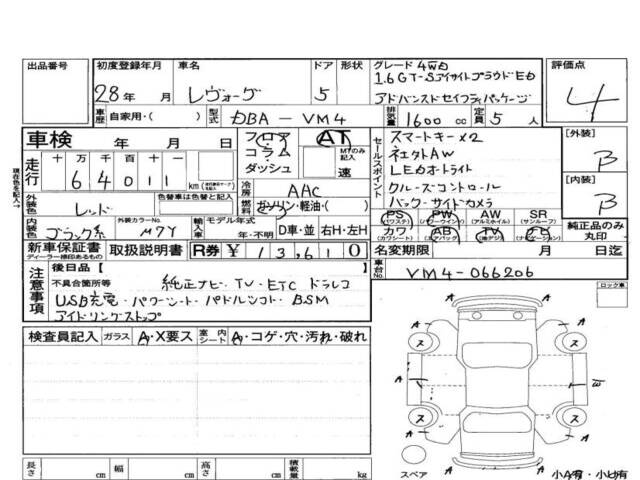 出品番号
初度登録年月 28年 月
車名 レヴォーグ
ドア 5
形状
グレード 4WD
1.6GT-SアイサイトプラウドエD
アドバンスドセイフティパッケージ
評価点 4
車歴 自家用・( )
型式 DBA-VM4
排気量 1600cc
定員 5人
車検 年 月 日
フロア AT
コラム MTのみ記入
ダッシュ 速
走行 十万 千百十一
64011 km
セールスポイント
スマートキー×2
社外AW
LEDオートライト
クルーズコントロール
バックサイドカメラ
[外装] B
[内装] B
冷房 AAC
燃料 ガソリン・軽油・( )
外装色 レッド
色替車は色替と記入
現在色を記入→
内装色 ブラック系
外装カラーNo. M7Y
輸入車 モデル年式 年・不明
D車・並 右H・左H
PS (パワステ) PW (パワーウインド) AW (アルミホイル) SR (サンルーフ)
カワ (カワシート) AB (エアバック) TV (地デジ) ナビ (ナビゲーション)
純正品のみ丸印
新車保証書 ディーラー捺印あるもの
取扱説明書
R券 ¥13,610
名変期限 月 日迄
車台No. VM4-066206
注意事項
後日品【
不具合箇所等 純正ナビ・TV・ETC ドラレコ
USB充電・パワーシート・パドルシフト・BSM
アイドリングストップ
ロック車
検査員記入 ガラス A・X要ス 室内シート A・コゲ・穴・汚れ・破れ
A A
ス ス
A A W
ス ス
A A
スペア
小A有・小U有
長さ cm 幅 cm 高さ cm 積載量 kg